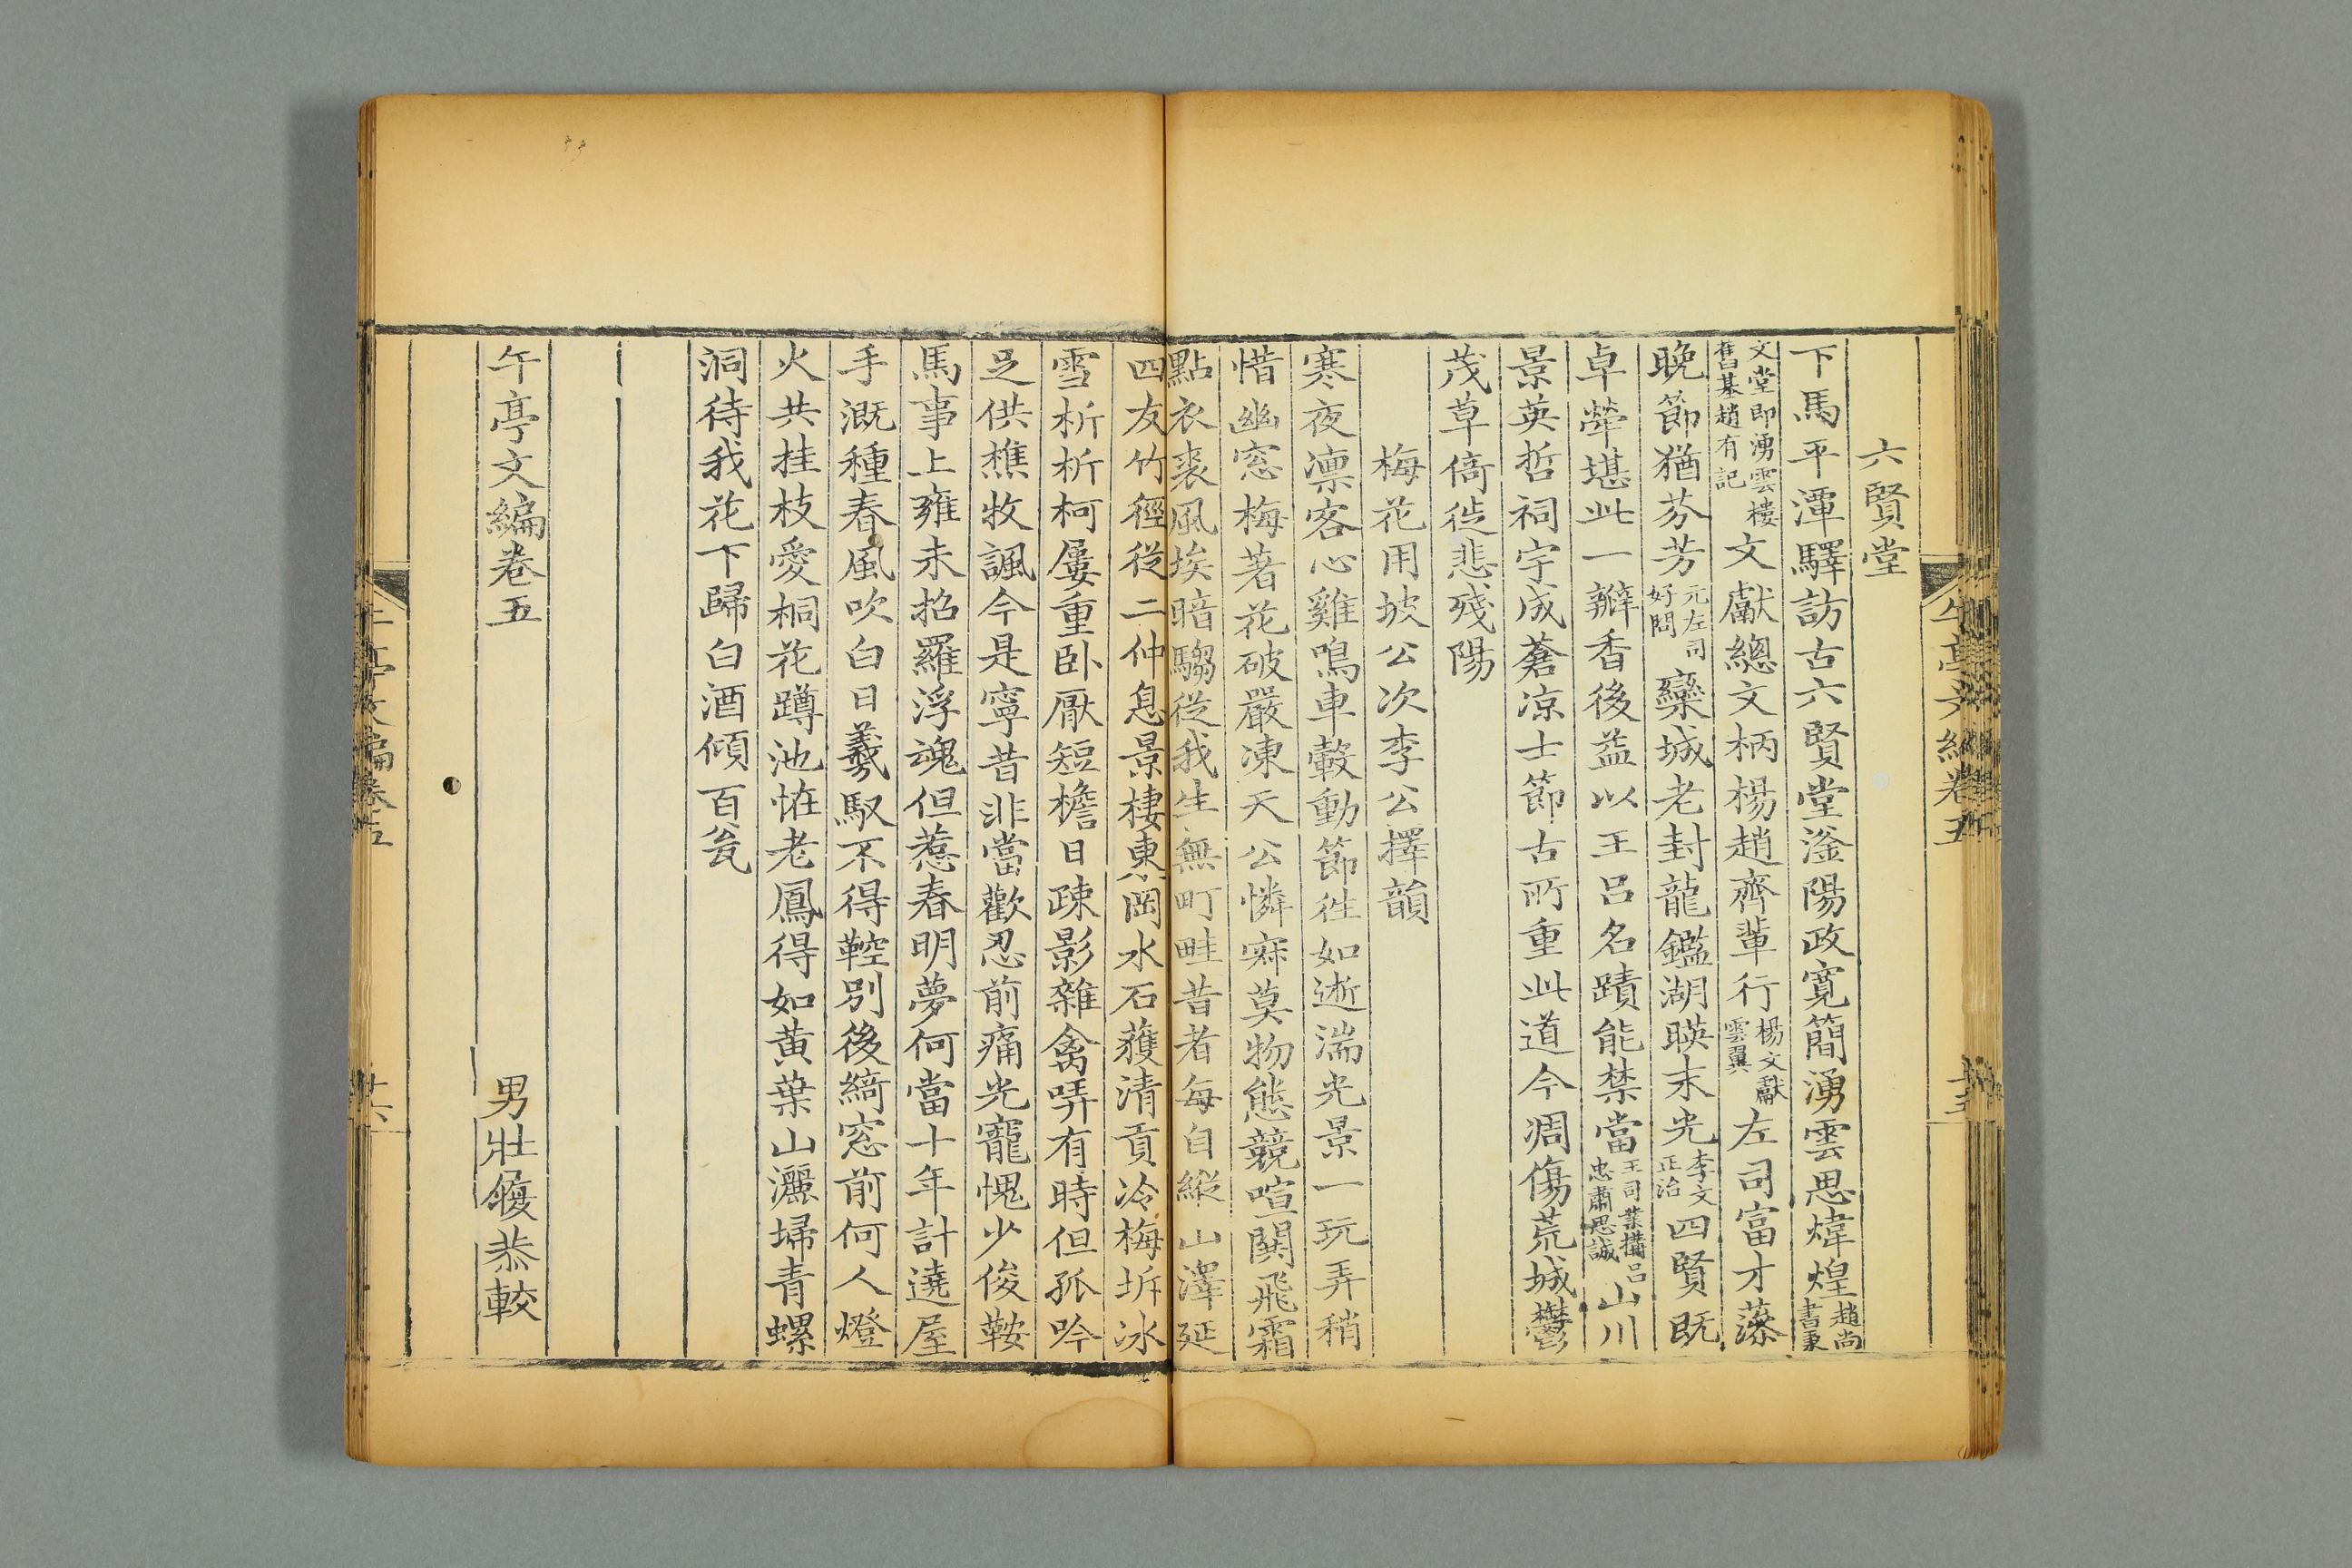 六賢堂
下馬平潭驛訪古六賢堂滏陽政寛簡湧雲思煒煌趙尚書秉
文堂即湧雲樓舊基趙有記文獻總文柄楊趙齊輩行楊文獻雲翼左司富才藻
晚節猶芬芳元左司好問欒城老封龍鑑湖暎末光李文正治四賢既
卓犖堪此一瓣香後益以王呂名蹟能禁當王司業構呂忠肅思誠山川
景英哲祠宇成蒼凉士節古所重此道今凋傷荒城鬱
茂草倚徙悲殘陽
梅花用坡公次李公擇韻
寒夜凛客心雞鳴車轂動節徃如逝湍光景一玩弄稍
惜幽窓梅著花破嚴凍天公憐寂莫物態競喧鬨飛霜
點衣裘風埃暗騶從我生無町畦昔者每自縱山澤延
四友竹徑從二仲息景棲東岡水石蓛清貢冷梅坼冰
雪析析柯屢重卧厭短檐日疎影雜禽哢有時但孤吟
足供樵牧諷今是寧昔非當歡忍前痛光寵愧少俊鞍
馬事上雍未招羅浮魂但惹春明夢何當十年計遶屋
手溉種春風吹白日羲馭不得鞚別後綺窓前何人燈
火共挂枝愛桐花蹲池恠老鳳得如黄葉山灑埽青螺
洞待我花下歸白酒傾百瓮
午亭文編卷五
男壯履恭較
午亭文編卷五